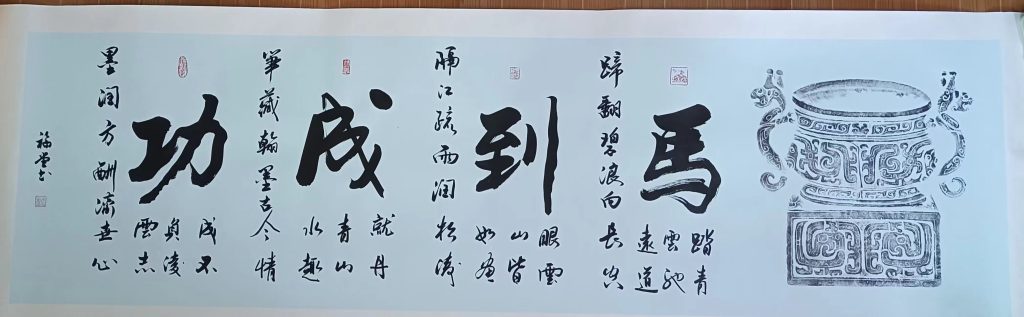 馬
踏青
雲馳
遠道
蹄翻碧浪向長空
到
眼雲
山皆
如畫
隔江疏雨潤松濤
成
就丹
青山
水趣
筆藏翰墨古今情
功
成不
負凌
雲志
墨潤方酬濟世心